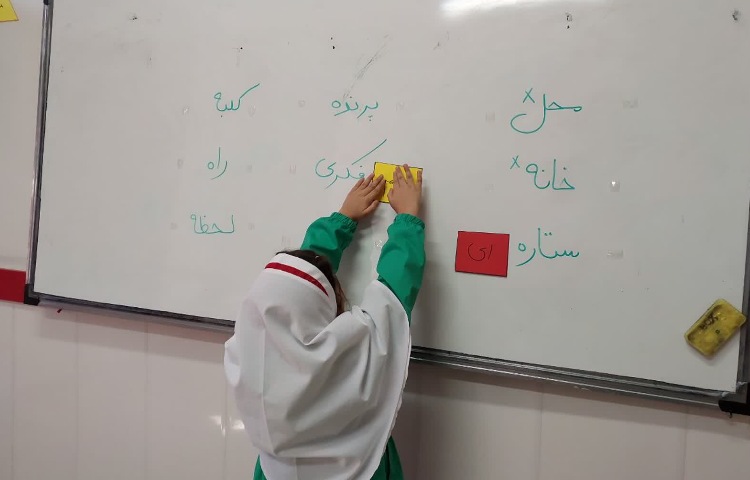 محل x
خانه x
ستاره ای
پرنده
فکری
کلبه
راه
لحظه